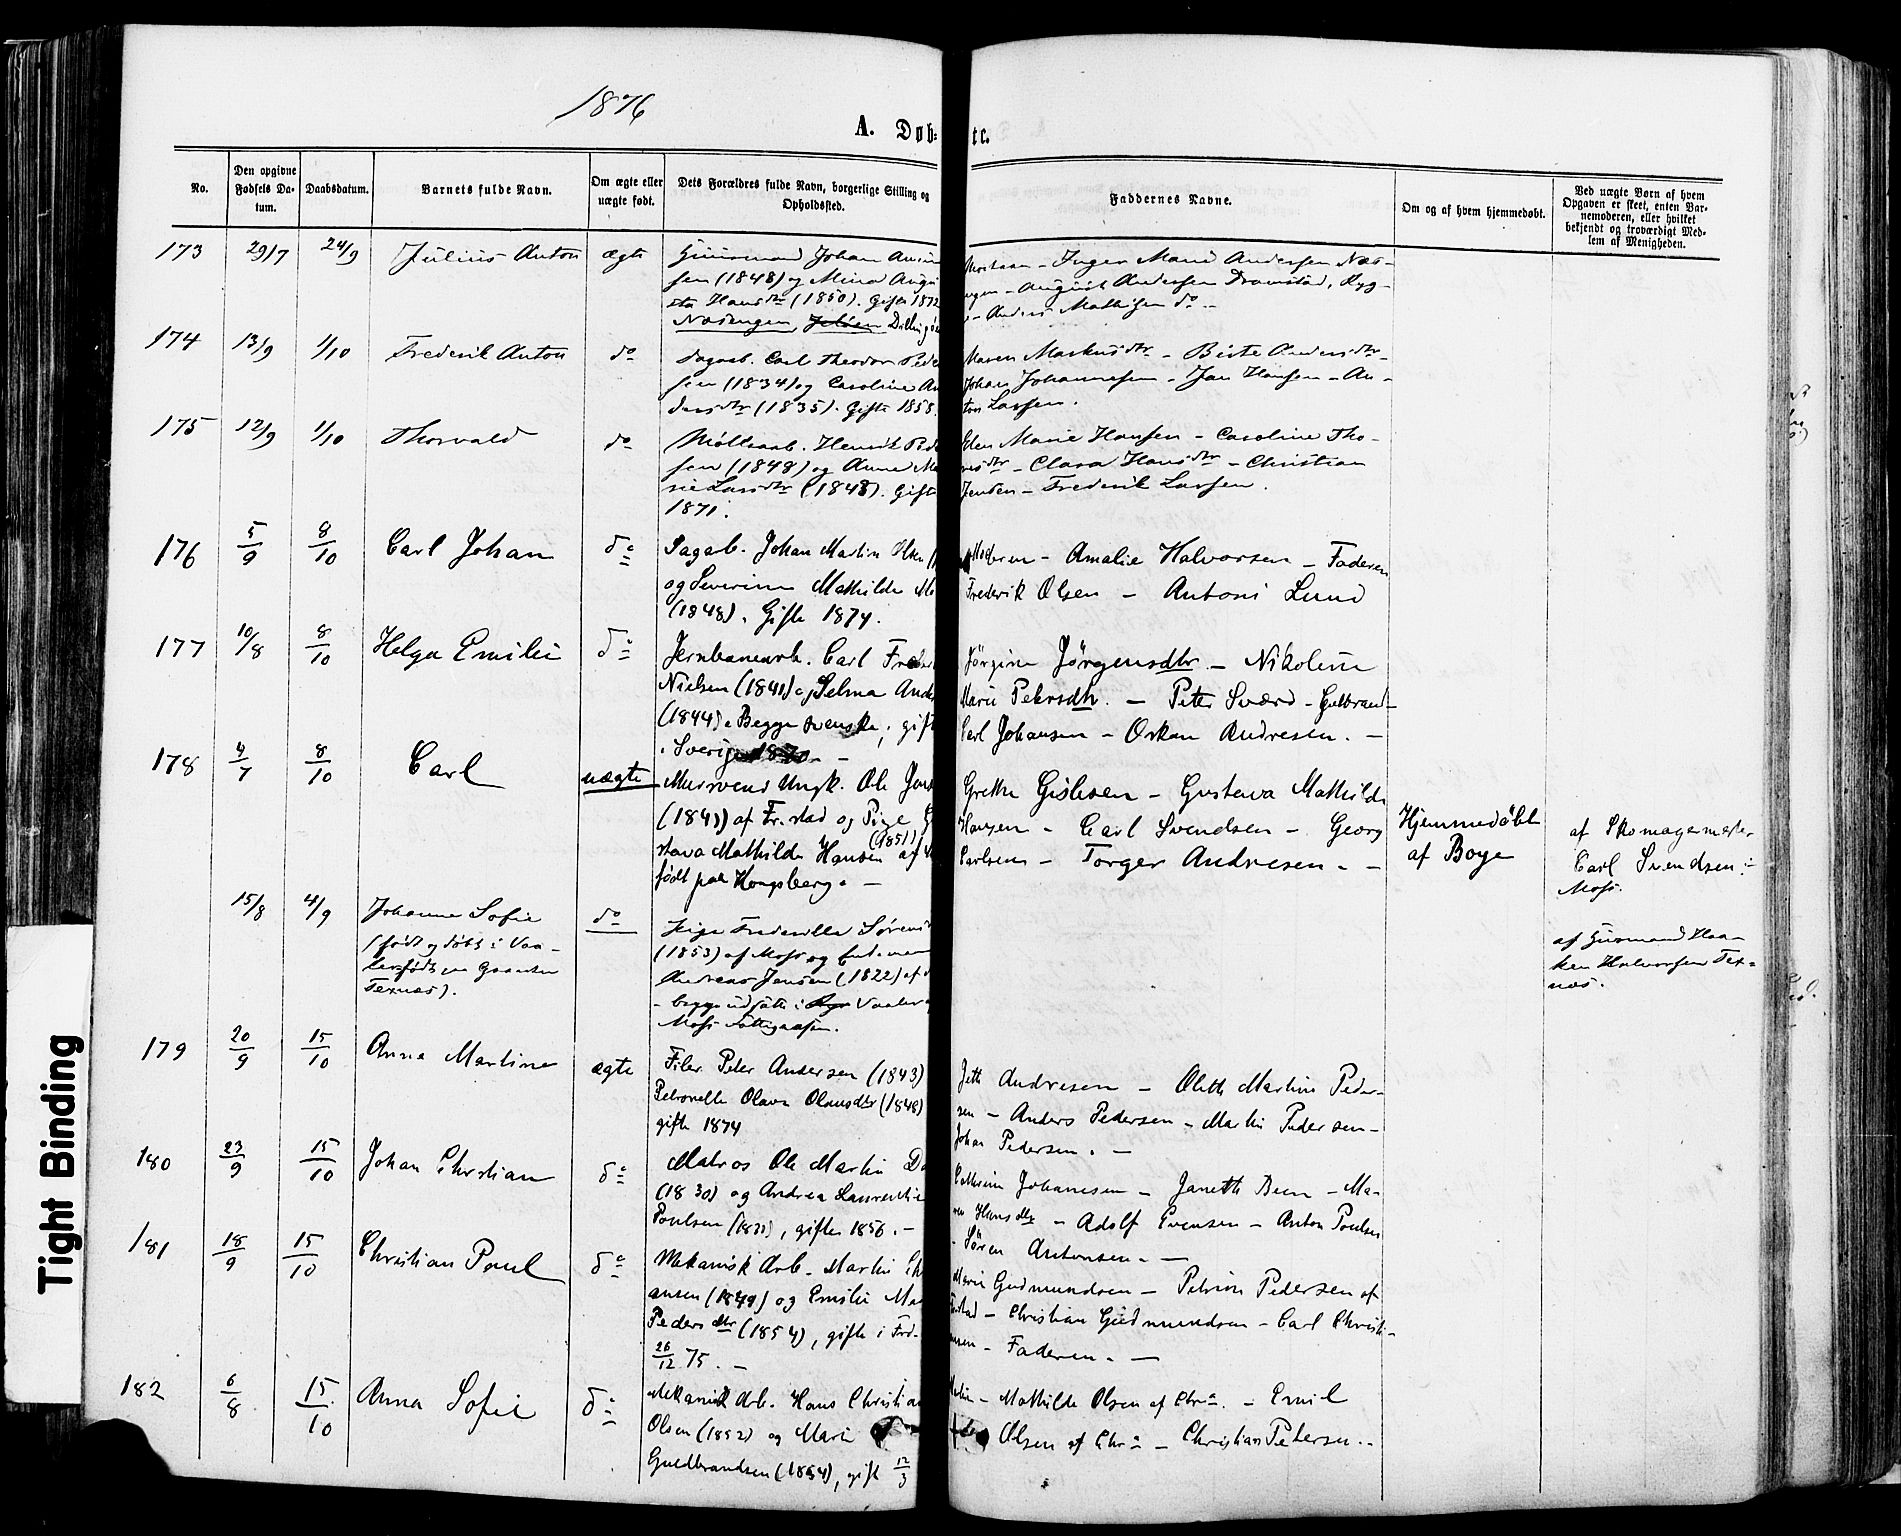 1876
A. Døb- tc.
No.
Den opgivne Fødsels Da- tum.
Daabsdatum.
Barnets fulde Navn.
Om ægte eller uægte født.
Dets Forældres fulde Navn, borgerlige Stilling og Opholdssted.
Faddernes Navne.
Om og af hvem hjemmedøbt.
Ved uægte Børn af hvem Opgaven er skeet, enten Bar- nemoderen, eller hvilket bekjendt og troværdigt Med- lem af Menigheden.
173 29/7 24/9 Julius Anton ægte
Johan
sen (1848) og Mina Augu
sta Hansdtr (1850). Gifte 1872
Dilling
Inger Marie Andersen Næs-
August Andersen Dramstad, Ryg-
Anders Mathisen do -
174 13/9 1/10 Frederik Anton do
Dagarb. Carl Theodor Pede
sen (1834) og Caroline An
dersdtr (1835). Gifte 1858.
Maren Markusdtr - Birte Andersdtr -
Johan Johannesen - Jan Hansen - An-
ton Larsen.
175 12/9 1/10 Thorvald do
Møllearb. Henrik Pede
sen (1848) og Anne Ma
rie Larsdtr (1848). Gifte
1871.
Elen Marie Hansen - Caroline Tho-
resdtr - Clara Hansdtr - Christian
Jensen - Frederik Larsen.
176 5/9 8/10 Carl Johan do
Dagarb. Johan Martin Olsen
og Severine Mathilde M
(1848). Gifte 1874.
Moderen - Amalie Halvorsen - Faderen
Frederik Olsen - Antoni Lund
177 10/8 8/10 Helga Emilie do
Jernbanearb. Carl Freder
Nielsen (1841) og Selma Ande
(1844). Begge svenske; gift
i Sverige 1870. -
Jørgine Jørgensdtr - Nikoline
Marie Petersdtr. - Peter Sværd - Gulbrand-
Carl Johansen - Oskar Andresen. -
178 4/7 8/10 Carl uægte
Murersvend Ungk. Ole Jens
af Fr.stad og Pige G
stava Mathilde Hansen (1851) af
født paa Kongsberg. -
Grethe Gislesen - Gustava Mathilde
Hansen - Carl Svendsen - Georg
Carlsen - Torger Andresen. -
Hjemmedøbt
af Boye
af Skomagermester
Carl Svendsen:
Moss.
15/8 4/9 Johanne Sofie do
(født og døbt i Vaa-
ler født paa Gaarden
Texnæs).
Pige Frederikke Sørens
(1853) af Moss og Enkemand
Andreas Jensen (1822) af
- begge udsatte i Vaaler
Moss Fattigvæsen.
af Gaardmand Haa-
ken Halvorsen Tex-
næs.
179 20/9 15/10 Anna Martine ægte
Filer Peter Andersen (1843)
Petronelle Olava Olausdtr (1848)
gifte 1874
Jette Andresen - Oleth Martine Peder-
sen - Anders Pedersen - Martin Pedersen -
Johan Pedersen. -
180 23/9 15/10 Johan Christian do
Matros Ole Martin Da
(1830) og Andrea Laurentine
Poulsen, gifte 1856. -
Cathrine Johannesen - Janette Been - Ma-
ren Hansdtr - Adolf Evensen - Anton Poulsen
- Søren Antonsen. -
181 18/9 15/10 Christian Poul do
Mekanisk Arb. Martin Chr
ansen (1849) og Emilie Ma
Pedersdtr (1854), gifte i Frd-
26/12 75. -
Marie Gudmundsen - Petrine Pedersen af
Fr.stad - Christian Gudmundsen - Carl Christi-
ansen - Faderen. -
182 6/8 15/10 Anna Sofie do
Mekanisk Arb. Hans Christian
Olsen (1852) og Marie
Guldbrandsen (1854), gifte 12/3
- Mathilde Olsen af Chra. - Emil
Olsen af Chra - Christian Petersen. -
Tight Binding